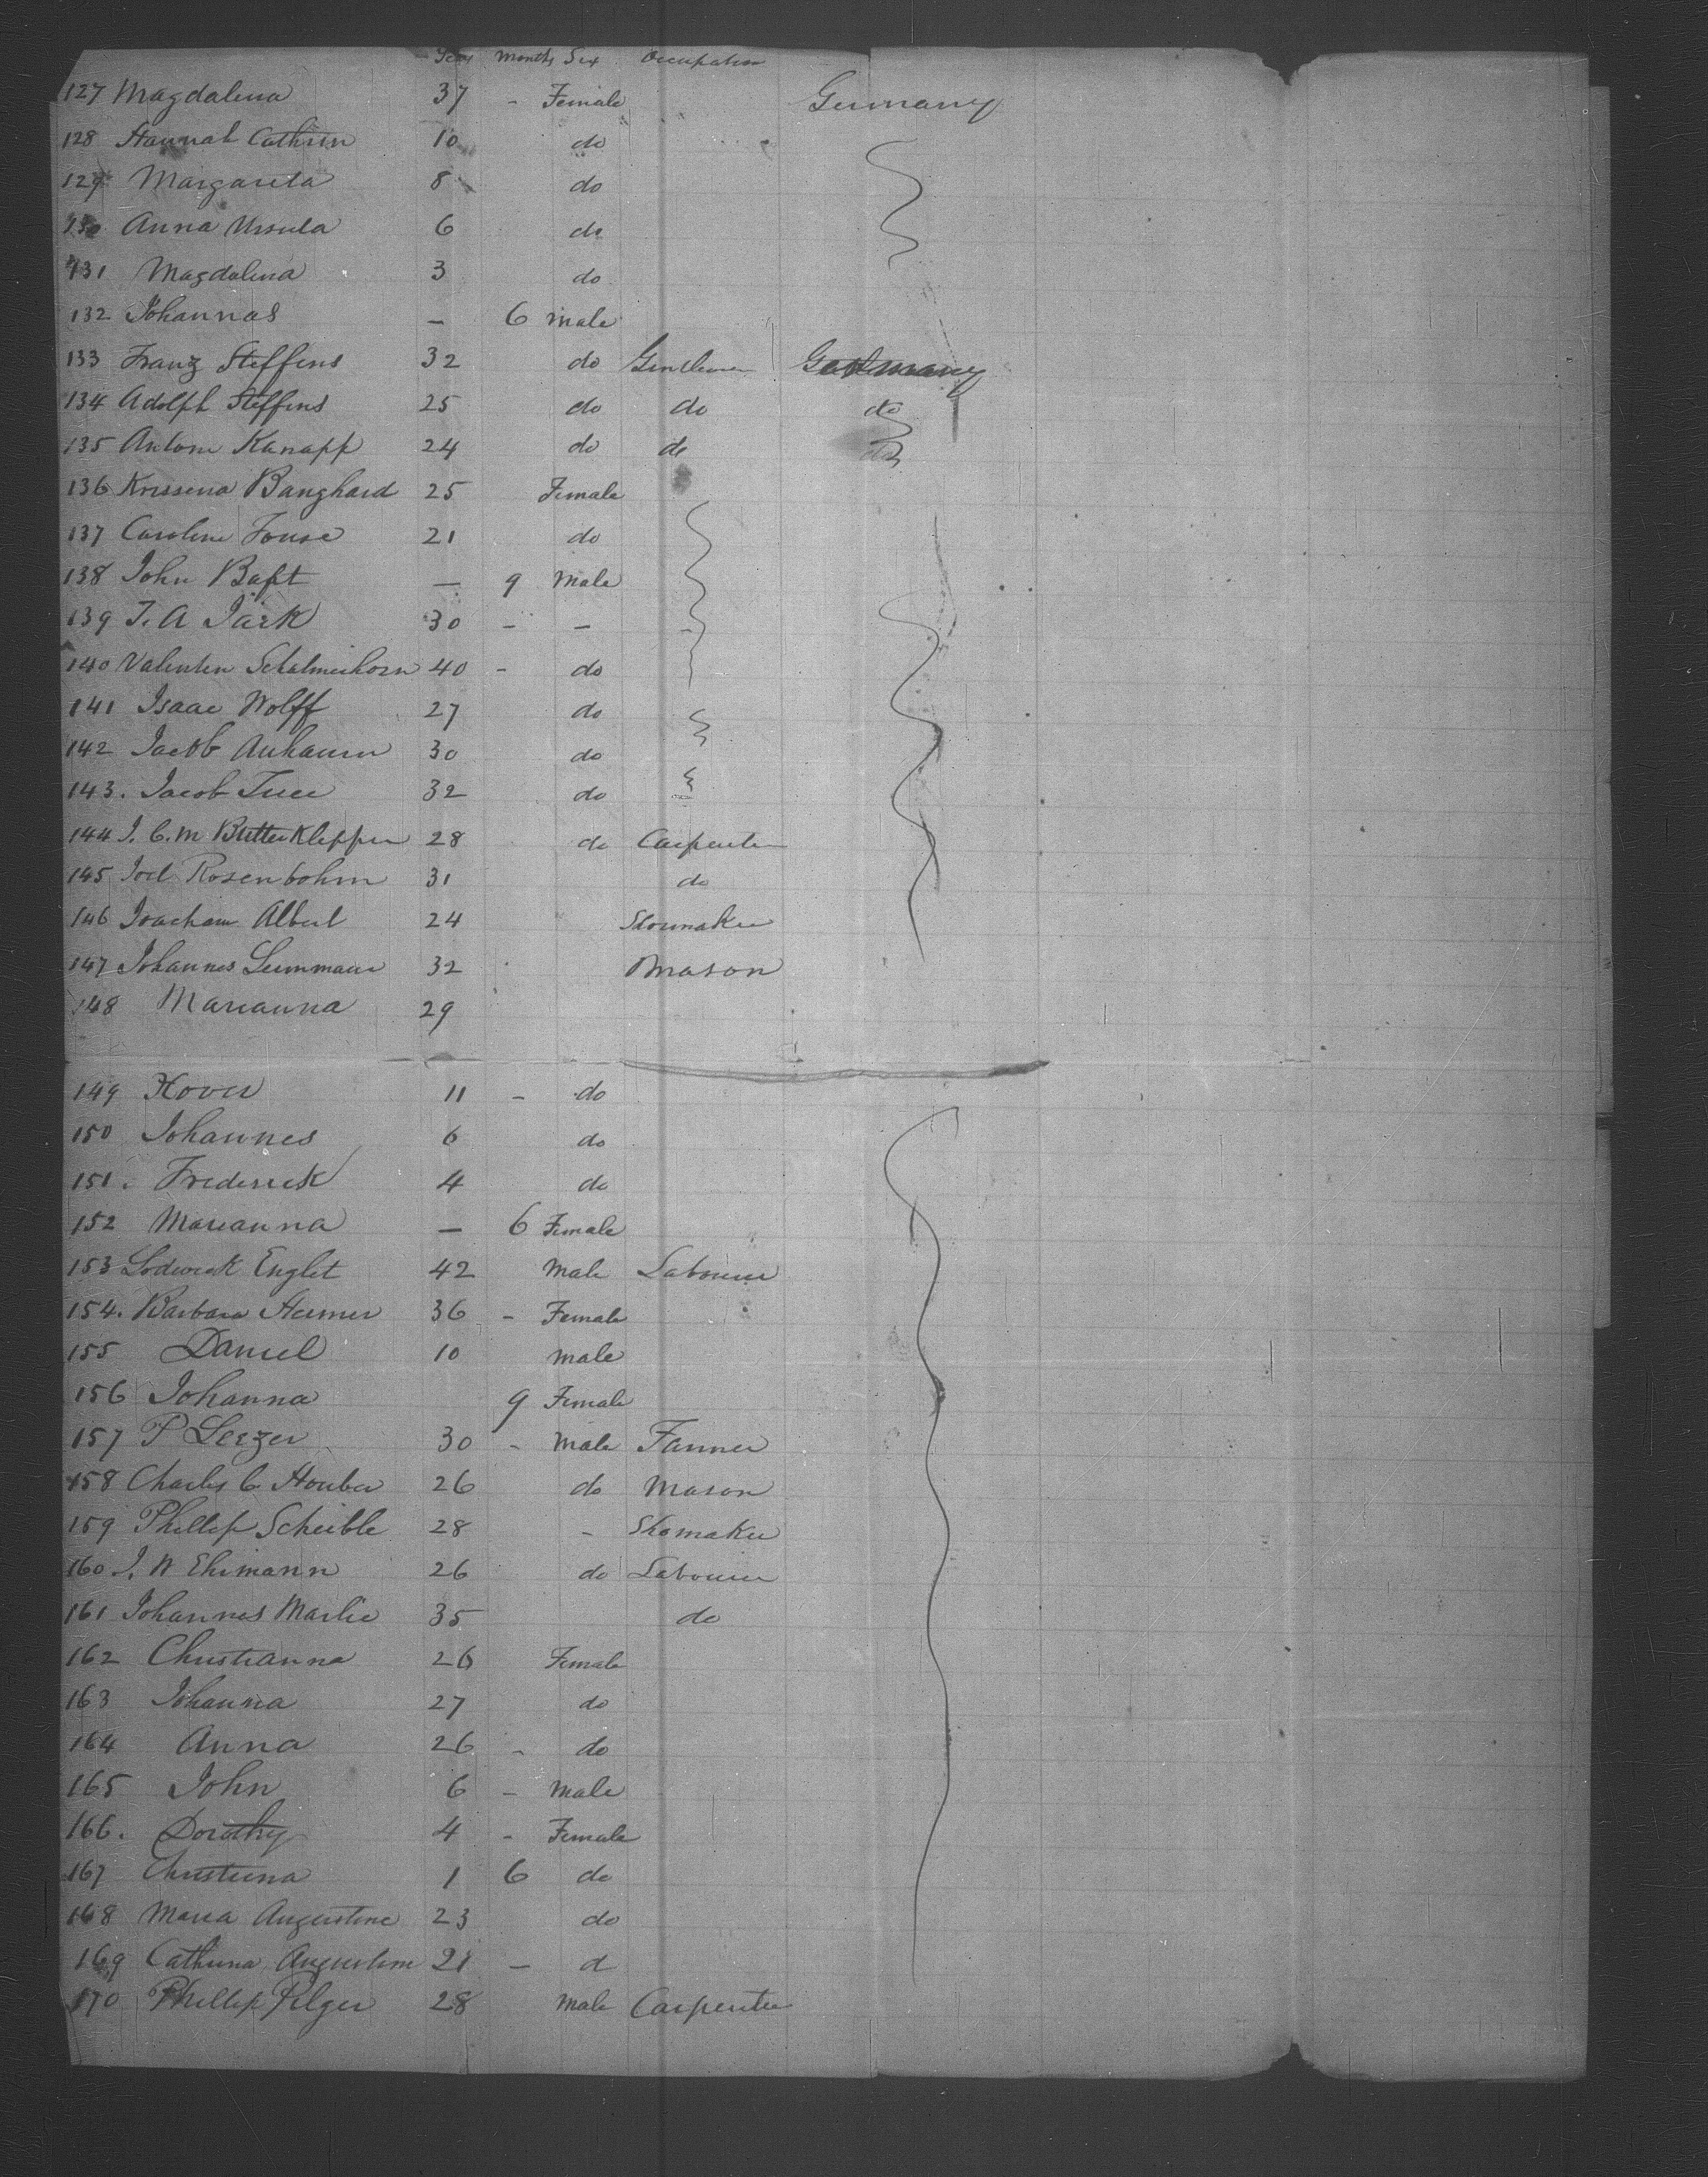 Years Months Sex Occupation
127 Magdalena 37 - Female Germany
128 Hannah Cathrin 10 do
129 Margareta 8 do
130 Anna Ursula 6 do
131 Magdalena 3 do
132 Johannas — 6 male
133 Franz Steffens 32 do Gentleman Germany
134 Adolph Steffens 25 do do do
135 Antone Kanapp 24 do do do
136 Krissena Banghard 25 Female
137 Caroline Fouse 21 do
138 John Bapt — 9 Male
139 J. A Jark 30 - - -
140 Valenten Schalmeihorn 40 - do
141 Isaac Wolff 27 do
142 Jacob 30 do
143. Jacob 32 do
144 J. C. M Butterklepper 28 do Carpenter
145 Joel Rosenbohm 31 do
146 Joacham Albert 24 Shoumaker
147 Johannes 32 Mason
148 Marianna 29
149 11 - do
150 Johannes 6 do
151. Frederick 4 do
152 Marianna — 6 Female
153 Lodewick Englet 42 Male Labourer
154. Barbara 36 - Female
155 Daniel 10 male
156 Johanna 9 Female
157 P Lerzer 30 - Male Farmer
158 Charles C Houber 26 do Mason
159 Phillip Scheible 28 - Shomaker
160 J. W Ehrmann 26 do Labourer
161 Johannes Marlie 35 do
162 Christianna 26 Female
163 Johanna 27 do
164 Anna 26 - do
165 John 6 - Male
166. Dorothy 4 - Female
167 Christena 1 6 do
168 Maria Augustine 23 do
169 Cathrina Augustine 21 — d
170 Phillip Pilger 28 Male Carpenter